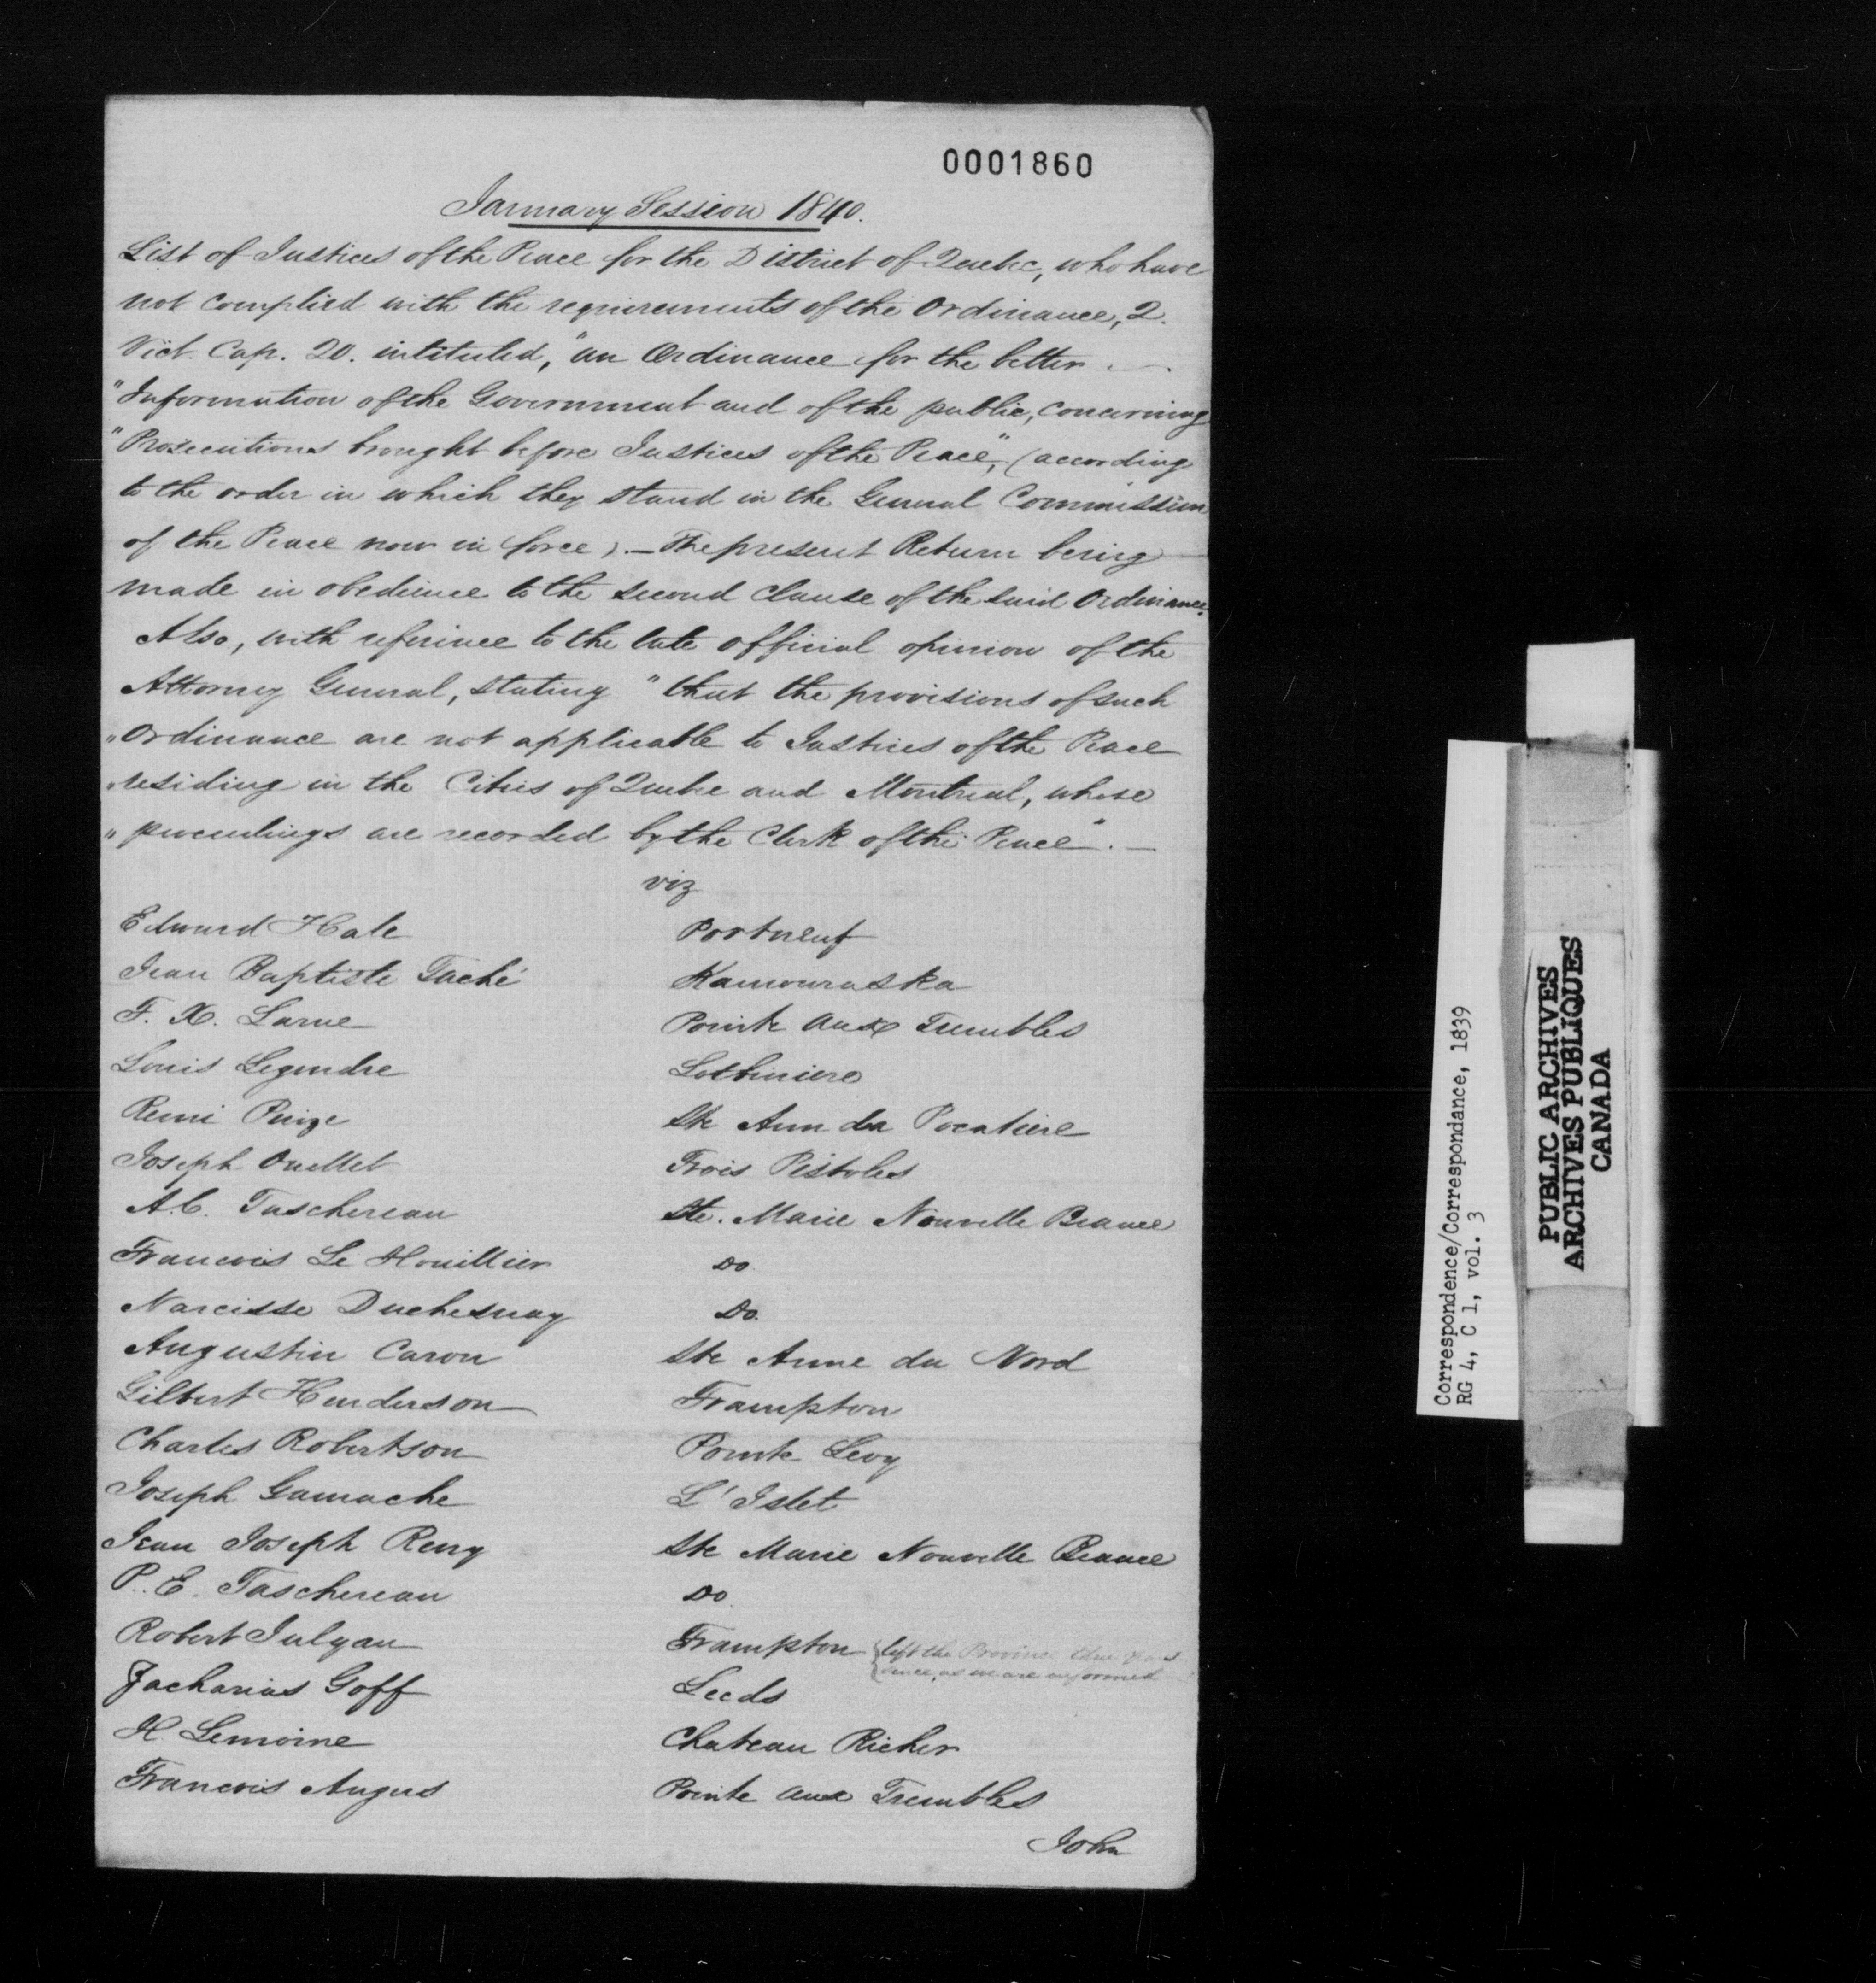 0001860
January Session 1840.
List of Justices of the Peace for the District of Quebec, who have
not complied with the requirements of the Ordinance, 2.
Vict. Cap. 20. intituled, "an Ordinance for the better
"Information of the Government and of the public, concerning
"Prosecutions brought before Justices of the Peace", (according
to the order in which they stand in the General Commission
of the Peace now in force). — The present Return being
made in obedience to the second Clause of the said Ordinance.
Also, with reference to the late official opinion of the
Attorney General, stating "that the provisions of such
"Ordinance are not applicable to Justices of the Peace
"residing in the Cities of Quebec and Montreal, whose
"proceedings are recorded by the Clerk of the Peace". —
viz
Edward Hale Portneuf
Jean Baptiste Taché Kamouraska
F. X. Larue Pointe aux Trembles
Louis Legendre Lotbiniere
Remi Ste Ann da Pocatiere
Joseph Ouellet Trois Pistoles
A. C. Taschereau Ste. Marie Nouvelle Beauce
Francois Le Houillier Do.
Narcisse Duchesnay Do.
Augustin Caron Ste Anne du Nord
Gilbert Henderson Frampton
Charles Robertson Pointe Levy
Joseph Gamache L'Islet
Jean Joseph Reny Ste Marie Nouvelle Beauce
P. E. Taschereau Do.
Robert Julyan Frampton {left the Province three years
{since, as we are informed
Zacharias Goff Leeds
H. Lemoine Chateau Richer
Francois Angers Pointe aux Trembles
John
Correspondence/Correspondance, 1839
RG 4, C 1, vol. 3
PUBLIC ARCHIVES
ARCHIVES PUBLIQUES
CANADA